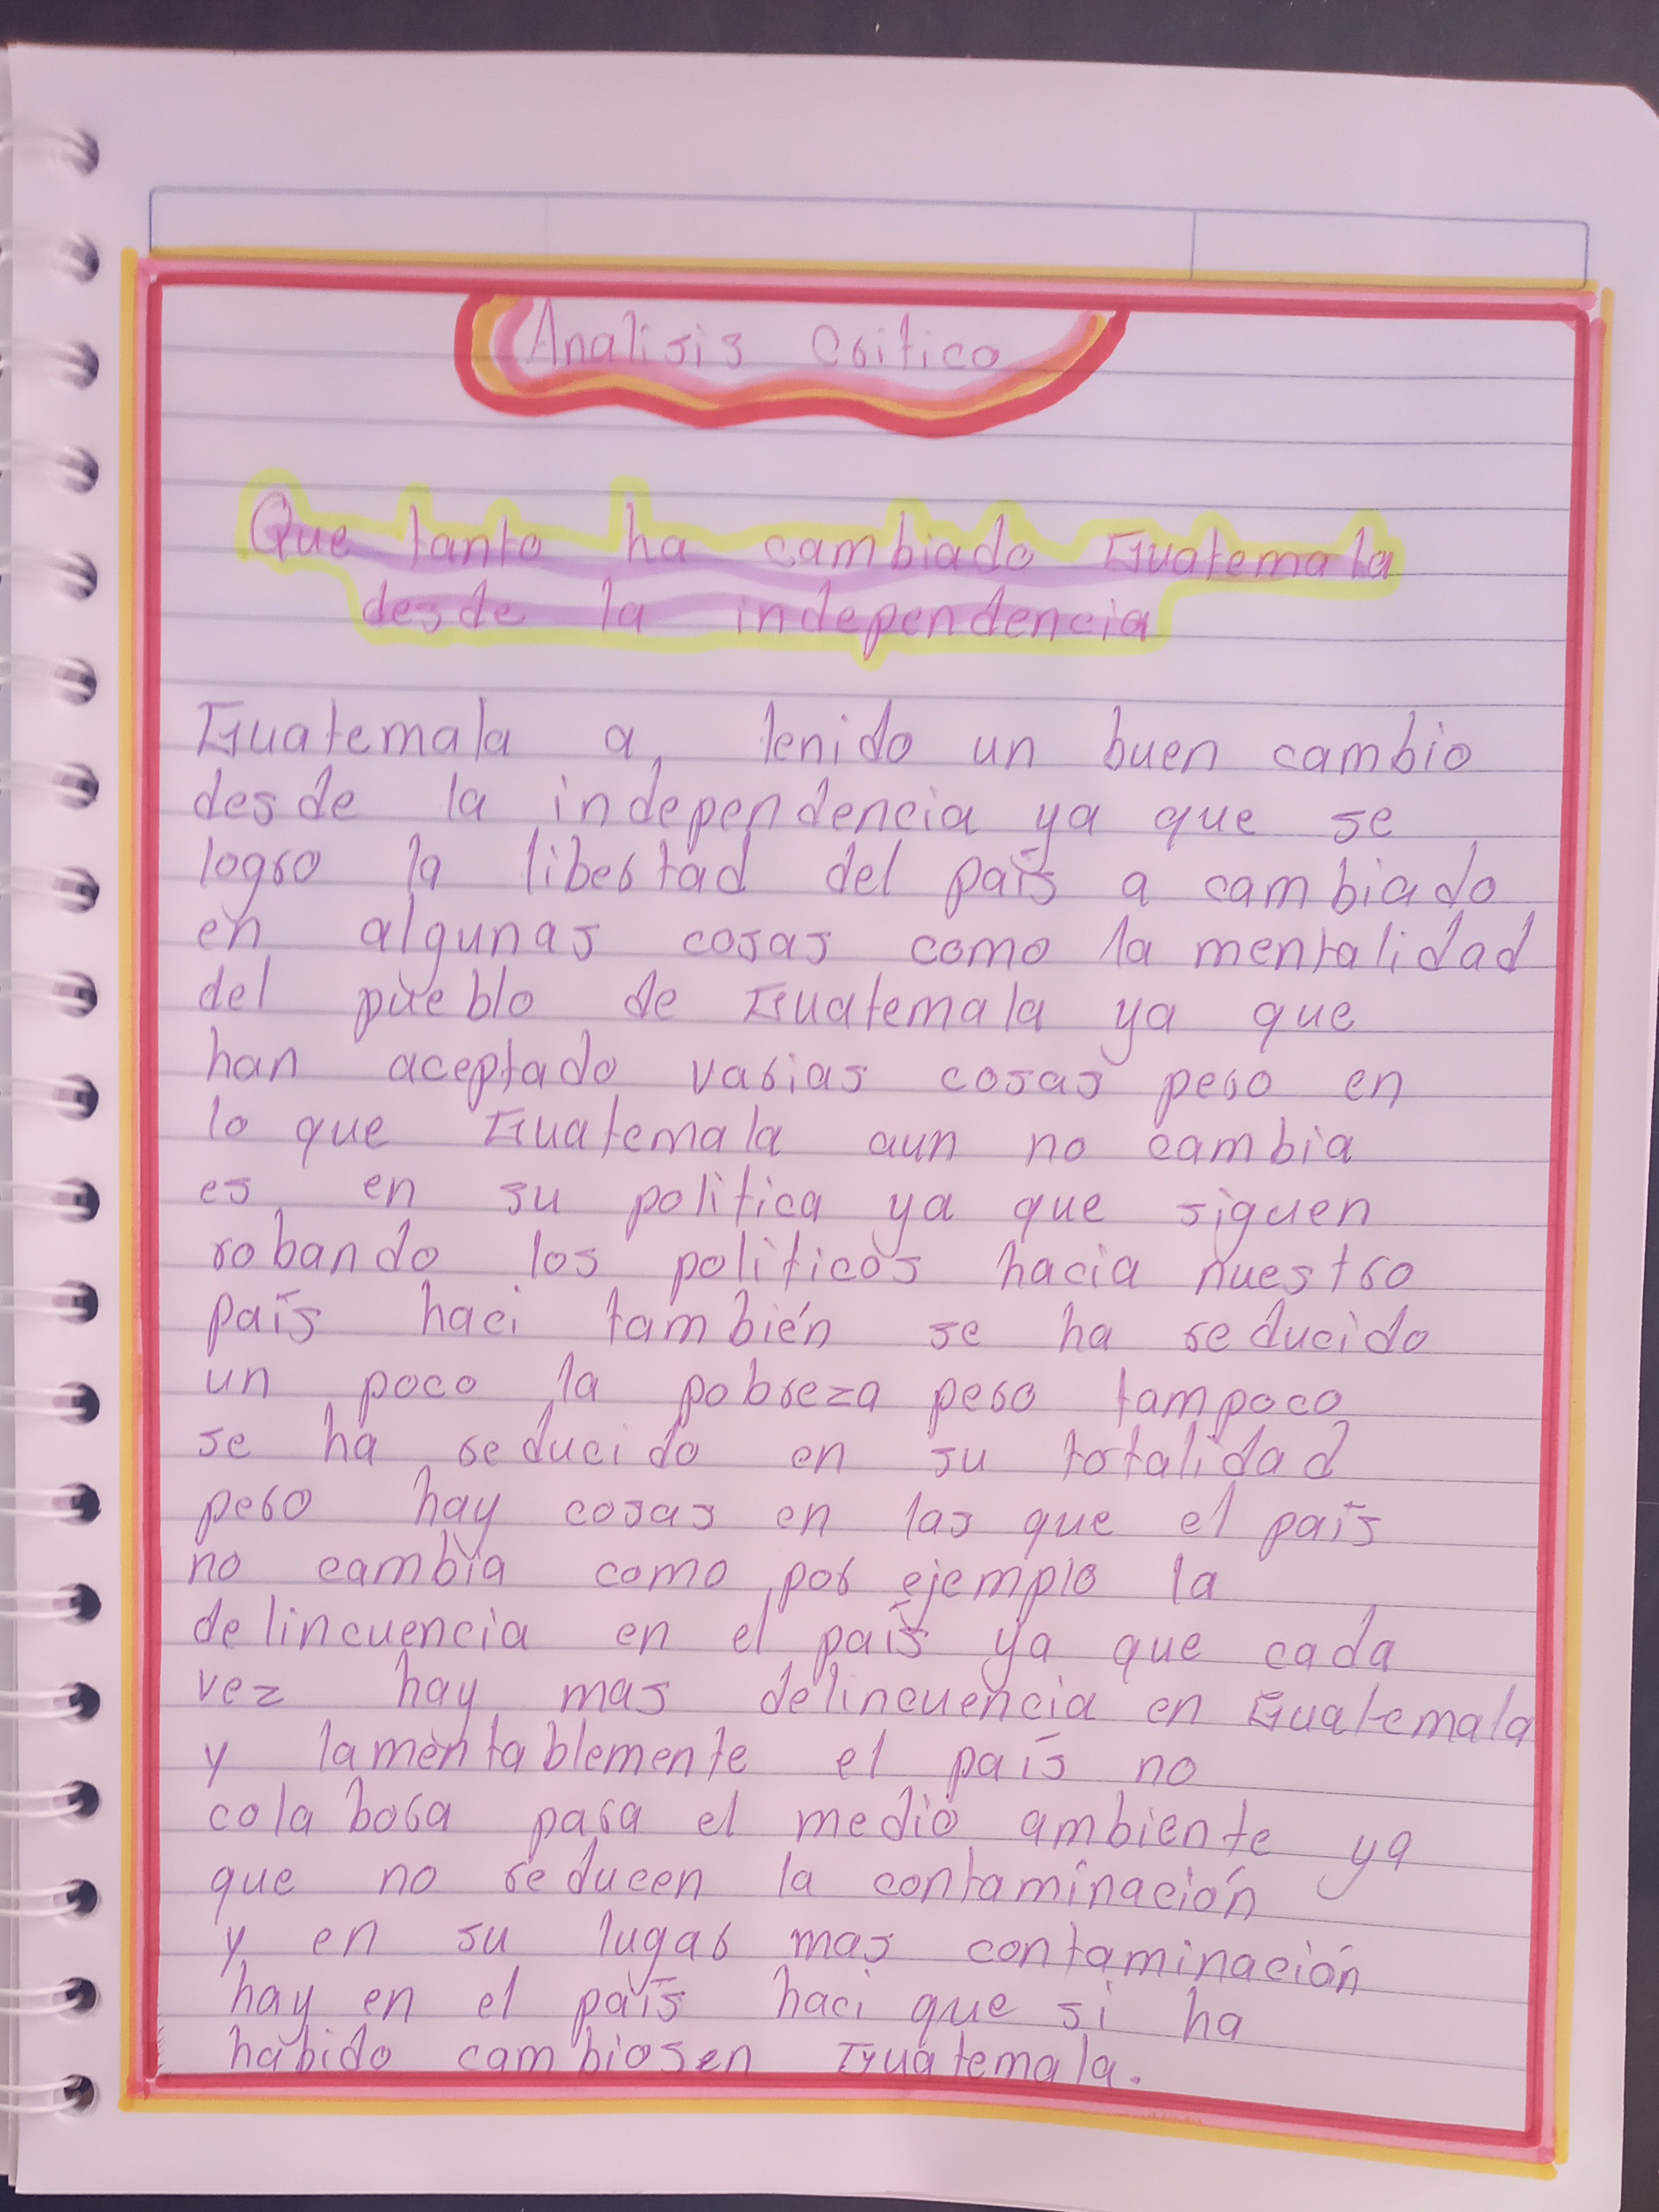 Analisis Critico
Que tanto ha cambiado Guatemala
desde la independencia
Guatemala a tenido un buen cambio
desde la independencia ya que se
logro la libertad del país a cambiado
en algunas cosas como la mentalidad
del pueblo de Guatemala ya que
han aceptado varias cosas pero en
lo que Guatemala aun no cambia
es en su politica ya que siguen
robando los politicos hacia nuestro
país haci también se ha reducido
un poco la pobreza pero tampoco
se ha reducido en su totalidad
pero hay cosas en las que el país
no cambia como por ejemplo la
delincuencia en el país ya que cada
vez hay mas delincuencia en Guatemala
y lamentablemente el país no
colabora para el medio ambiente ya
que no reducen la contaminación
y en su lugar mas contaminación
hay en el país haci que si ha
habido cambios en Guatemala.